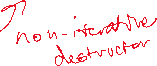 non-iterative
destructor